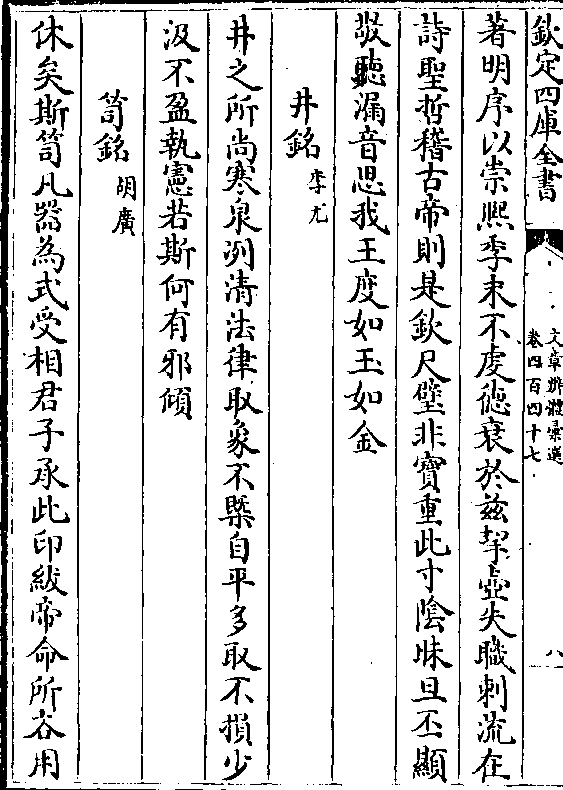 欽定四庫全書
文章辨體彙選
卷四百四十七
八
著明序以崇熙季末不虔徳衰於兹挈壺失職刺流在
詩聖哲稽古帝則是欽尺璧非寳重此寸隂昧旦丕顯
敬聽漏音思我王度如玉如金
井銘 李尤
井之所尚寒泉冽清法律取象不槩自平多取不損少
汲不盈執憲若斯何有邪傾
笥銘 胡廣
休矣斯笥凡器為式受相君子承此印紱帝命所咨用